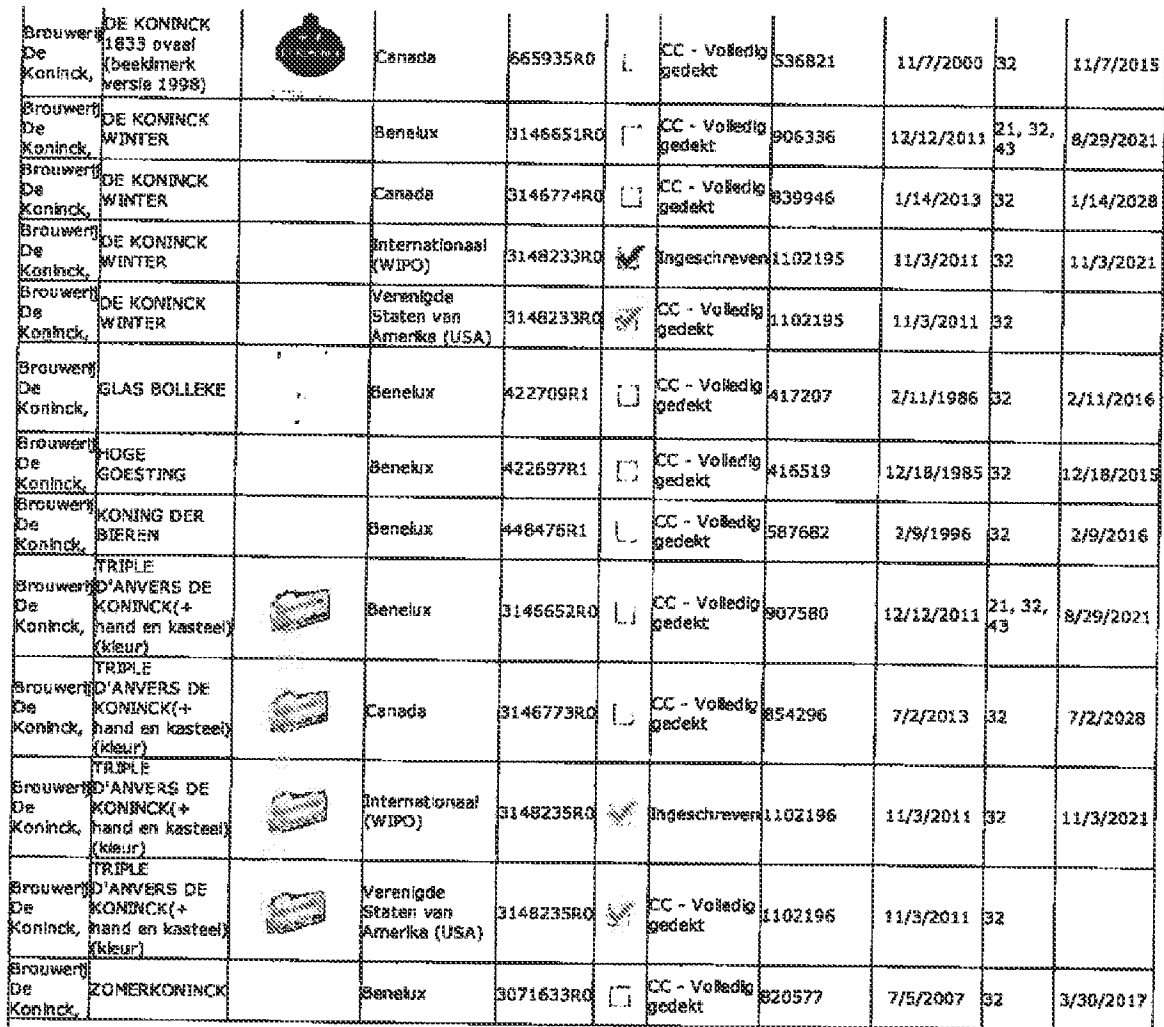 Brouwerij De Koninck, DE KONINCK 1833 ovaal (beeldmerk versie 1998) Canada 665935R0 CC - Volledig gedekt 536821 11/7/2000 32 11/7/2015
Brouwerij De Koninck, DE KONINCK WINTER Benelux 3146651R0 CC - Volledig gedekt 906336 12/12/2011 21, 32, 43 8/29/2021
Brouwerij De Koninck, DE KONINCK WINTER Canada 3146774R0 CC - Volledig gedekt 839946 1/14/2013 32 1/14/2028
Brouwerij De Koninck, DE KONINCK WINTER Internationaal (WIPO) 3148233R0 Ingeschreven 1102195 11/3/2011 32 11/3/2021
Brouwerij De Koninck, DE KONINCK WINTER Verenigde Staten van Amerika (USA) 3148233R0 CC - Volledig gedekt 1102195 11/3/2011 32
Brouwerij De Koninck, GLAS BOLLEKE Benelux 422709R1 CC - Volledig gedekt 417207 2/11/1986 32 2/11/2016
Brouwerij De Koninck, HOGE GOESTING Benelux 422697R1 CC - Volledig gedekt 416519 12/18/1985 32 12/18/2015
Brouwerij De Koninck, KONING DER BIEREN Benelux 448476R1 CC - Volledig gedekt 587682 2/9/1996 32 2/9/2016
Brouwerij De Koninck, TRIPLE D'ANVERS DE KONINCK(+ hand en kasteel) (kleur) Benelux 3146652R0 CC - Volledig gedekt 907580 12/12/2011 21, 32, 43 8/29/2021
Brouwerij De Koninck, TRIPLE D'ANVERS DE KONINCK(+ hand en kasteel) (kleur) Canada 3146773R0 CC - Volledig gedekt 854296 7/2/2013 32 7/2/2028
Brouwerij De Koninck, TRIPLE D'ANVERS DE KONINCK(+ hand en kasteel) (kleur) Internationaal (WIPO) 3148235R0 Ingeschreven 1102196 11/3/2011 32 11/3/2021
Brouwerij De Koninck, TRIPLE D'ANVERS DE KONINCK(+ hand en kasteel) (kleur) Verenigde Staten van Amerika (USA) 3148235R0 CC - Volledig gedekt 1102196 11/3/2011 32
Brouwerij De Koninck, ZOMERKONINCK Benelux 3071633R0 CC - Volledig gedekt 820577 7/5/2007 32 3/30/2017